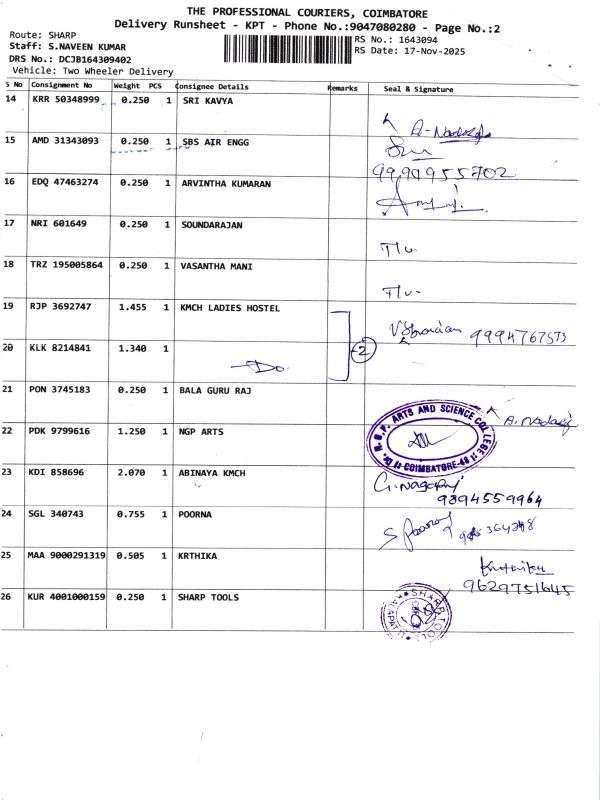 THE PROFESSIONAL COURIERS, COIMBATORE
Delivery Runsheet - KPT - Phone No.:9047080280 - Page No.:2
Route: SHARP
Staff: S.NAVEEN KUMAR
DRS No.: DCJB164309402
Vehicle: Two Wheeler Delivery
RS No.: 1643094
RS Date: 17-Nov-2025
S No Consignment No Weight PCS Consignee Details Remarks Seal & Signature
14 KRR 50348999 0.250 1 SRI KAVYA
15 AMD 31343093 0.250 1 SBS AIR ENGG
16 EDQ 47463274 0.250 1 ARVINTHA KUMARAN
17 NRI 601649 0.250 1 SOUNDARAJAN
18 TRZ 195005864 0.250 1 VASANTHA MANI
19 RJP 3692747 1.455 1 KMCH LADIES HOSTEL 9994767573
20 KLK 8214841 1.340 1 Do. 2
21 PON 3745183 0.250 1 BALA GURU RAJ
22 PDK 9799616 1.250 1 NGP ARTS N.G.P. ARTS AND SCIENCE COLLEGE COIMBATORE-48
23 KDI 858696 2.070 1 ABINAYA KMCH G. Nagaraj 9894559964
24 SGL 340743 0.755 1 POORNA
25 MAA 9000291319 0.505 1 KRTHIKA Krthika 9629751645
26 KUR 4001000159 0.250 1 SHARP TOOLS